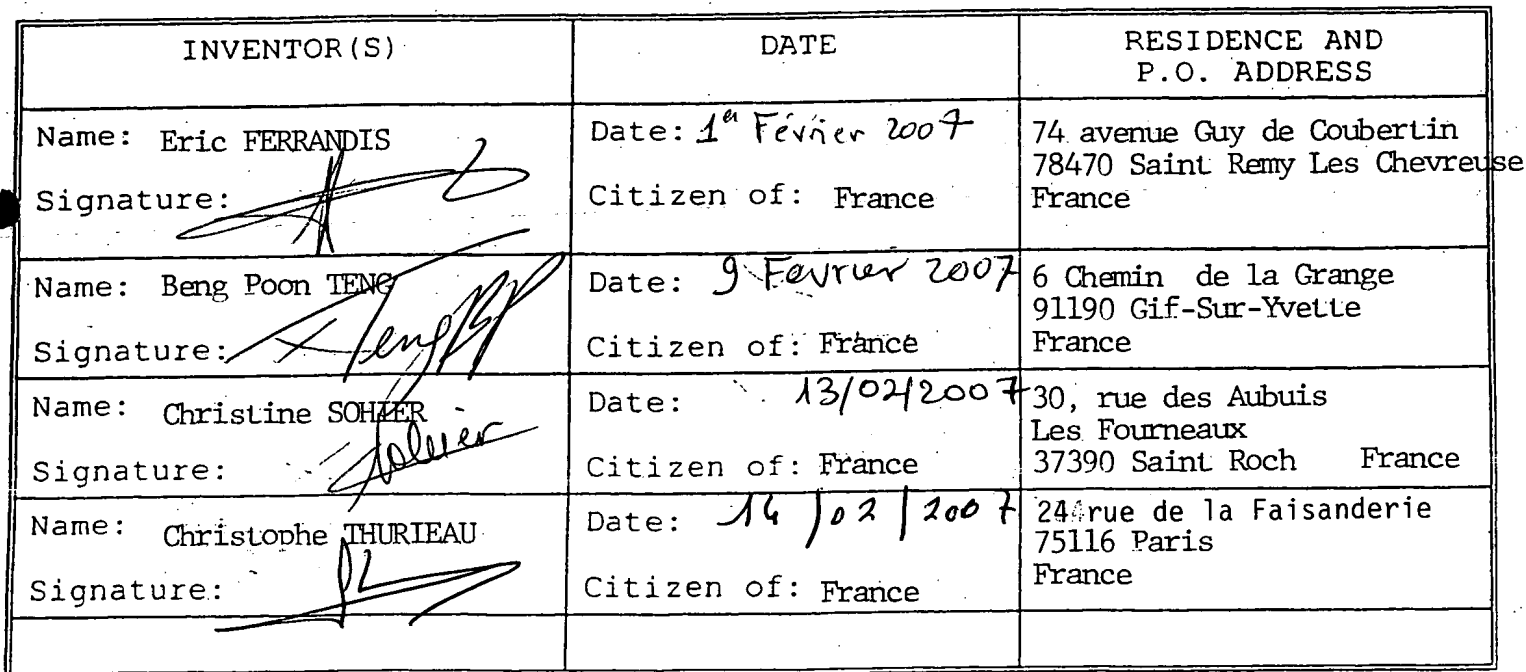 INVENTOR(S)
DATE
RESIDENCE AND
P.O. ADDRESS
Name: Eric FERRANDIS
Signature:
Date: 1er Février 2007
Citizen of: France
74 avenue Guy de Coubertin
78470 Saint Remy Les Chevreuse
France
Name: Beng Poon TENG
Signature: TengBP
Date: 9 Fevrier 2007
Citizen of: France
6 Chemin de la Grange
91190 Gif-Sur-Yvette
France
Name: Christine SOHIER
Signature: Sohier
Date: 13/02/2007
Citizen of: France
30, rue des Aubuis
Les Fourneaux
37390 Saint Roch France
Name: Christophe THURIEAU
Signature:
Date: 14/02/2007
Citizen of: France
24 rue de la Faisanderie
75116 Paris
France